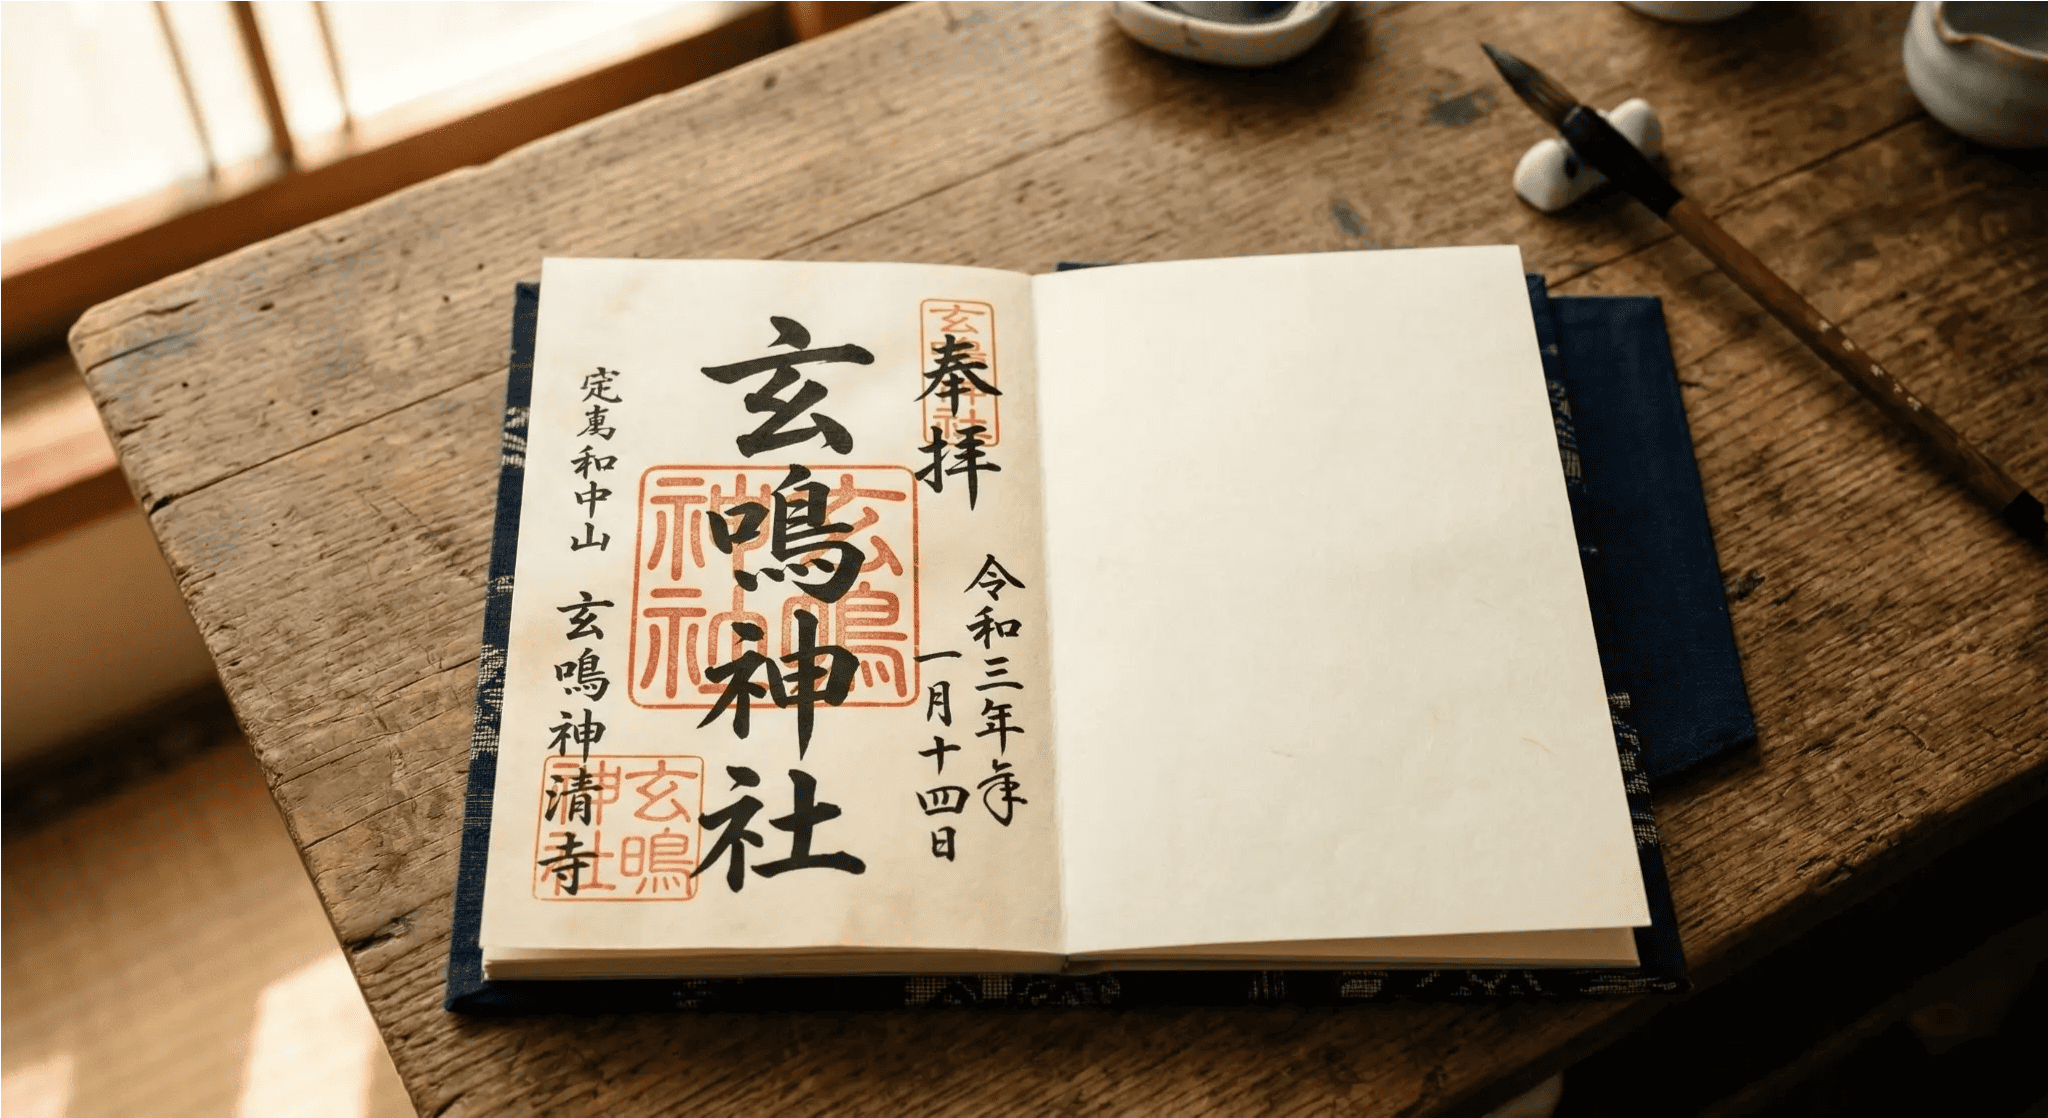 奉拝
令和三年年
一月十四日
玄鳴神社
定萬和中山
玄鳴神清寺
玄鳴神社
玄鳴神社
玄鳴神社